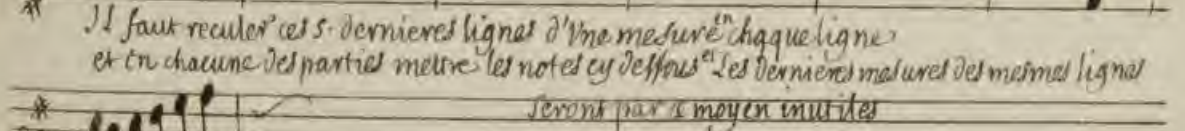 Il faut reculer ces 5. dernieres lignes d'Une mesure en chaque ligne
et En chacune des parties mettre les notes cy dessous et Les Dernieres mesures des mesmes lignes
seront par ce moyen inutiles